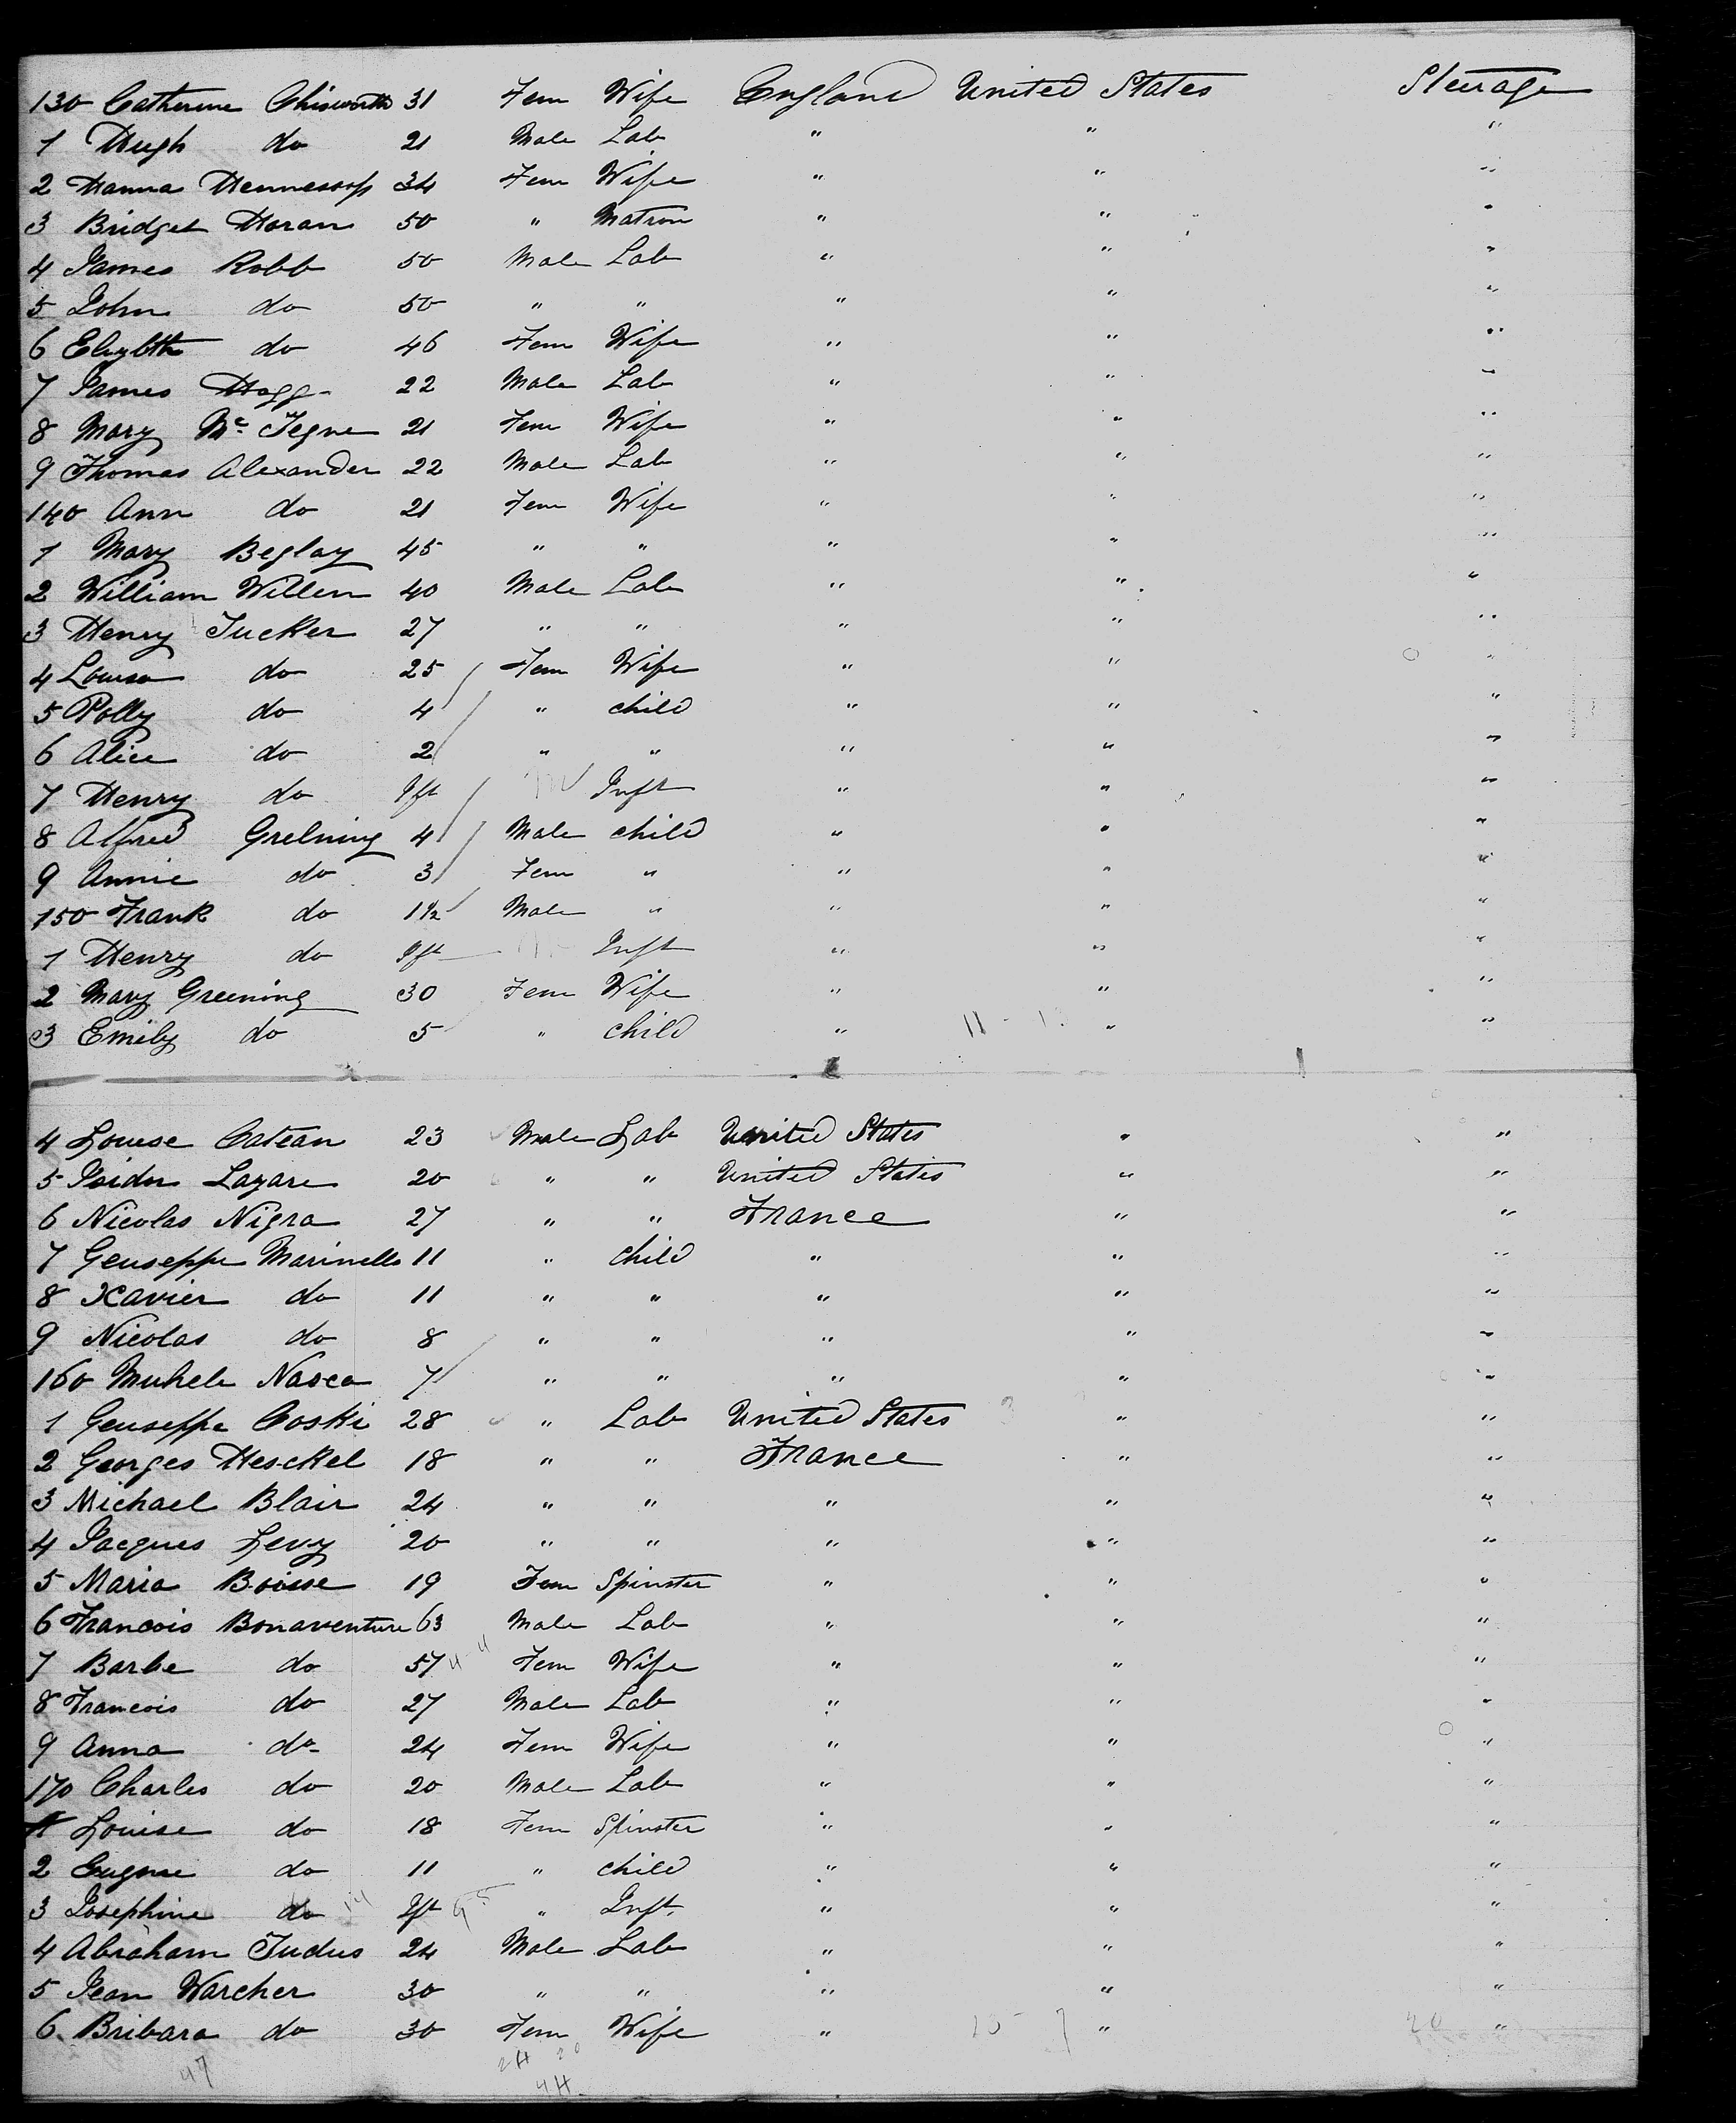 130 Catherine Chisworth 31 Fem Wife England United States Steerage
1 Hugh do 21 Male Lab " " "
2 Hanna Hennessy 34 Fem Wife " " "
3 Bridget Horan 50 " Matron " " "
4 James Robb 50 Male Lab " " "
5 John do 50 " " " " "
6 Elizbth do 46 Fem Wife " " "
7 James Hogg 22 Male Lab " " "
8 Mary Mc Tegue 21 Fem Wife " " "
9 Thomas Alexander 22 Male Lab " " "
140 Ann do 21 Fem Wife " " "
1 Mary Beglay 45 " " " " "
2 William Willem 40 Male Lab " " "
3 Henry Tucker 27 " " " " "
4 Louisa do 25 Fem Wife " " "
5 Polly do 4 " child " " "
6 Alice do 2 " " " " "
7 Henry do Ift M Inft " " "
8 Alfred Grelning 4 Male child " " "
9 Annie do 3 Fem " " " "
150 Frank do 1½ Male " " " "
1 Henry do Ift Inft " " "
2 Mary Greening 30 Fem Wife " " "
3 Emily do 5 " child " " "
4 Louise Catean 23 Male Lab United States " "
5 Isidor Lazare 20 " " United States " "
6 Nicolas Nigra 27 " " France " "
7 Geuseppe Marinello 11 " child " " "
8 Xavier do 11 " " " " "
9 Nicolas do 8 " " " " "
160 Muhele Nasca 7 " " " " "
1 Geuseppe Coski 28 " Lab United States " "
2 Georges Heschel 18 " " France " "
3 Michael Blair 24 " " " " "
4 Jacques Levy 20 " " " " "
5 Maria Boisse 19 Fem Spinster " " "
6 Francois Bonaventure 63 Male Lab " " "
7 Barbe do 57 Fem Wife " " "
8 Francois do 27 Male Lab " " "
9 Anna do 24 Fem Wife " " "
170 Charles do 20 Male Lab " " "
1 Louise do 18 Fem Spinster " " "
2 Eugene do 11 " child " " "
3 Josephine do Ift " Inft. " " "
4 Abraham Judus 24 Male Lab " " "
5 Jean Warcher 30 " " " " "
6 Bribara do 30 Fem Wife " " "
47